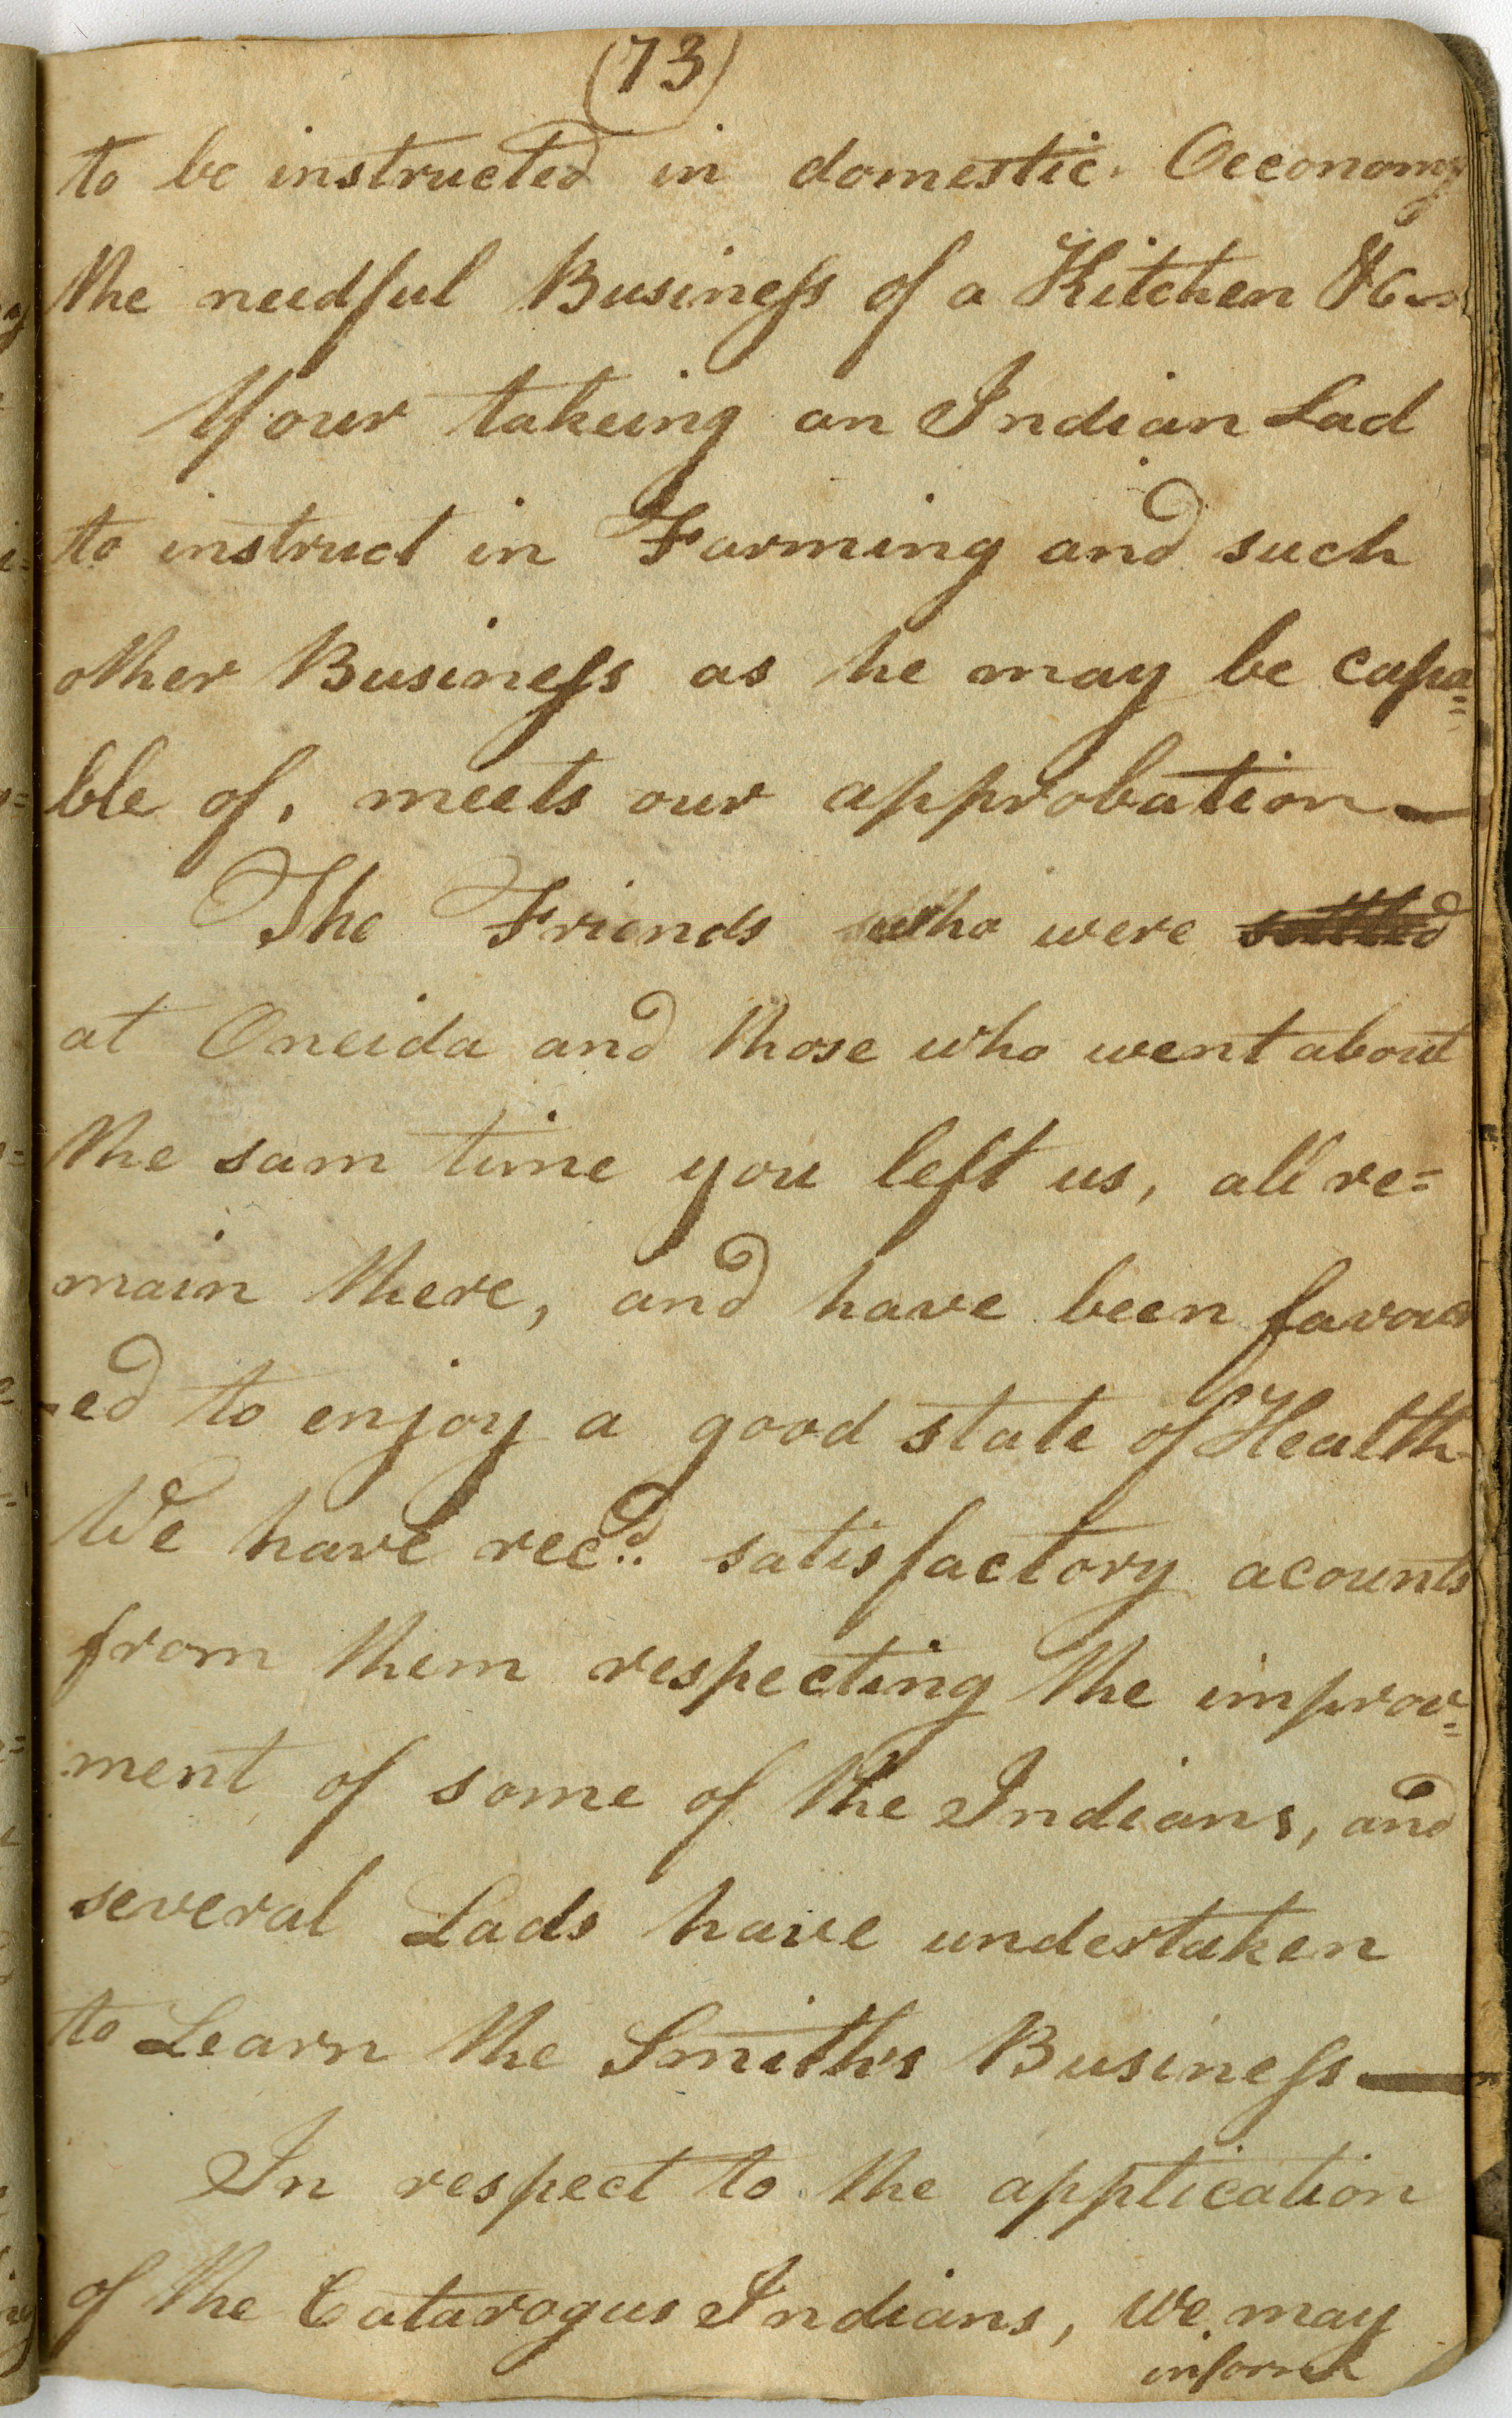 (73)
to be instructed in domestic Oeconomy
the needful Business of a Kitchen &c
Your takeing an Indian Lad
to instruct in Farming and such
other Business as he may be capa=
ble of, meets our approbation —
The Friends who were settled
at Oneida and those who went about
the sam time you left us, all re=
main there, and have been favour
-ed to enjoy a good state of Health
We have rec.d satisfactory acounts
from them respecting the improv=
ment of some of the Indians, and
several Lads have undertaken
to Learn the Smiths Business —
In respect to the application
of the Catarogus Indians, we may
inform